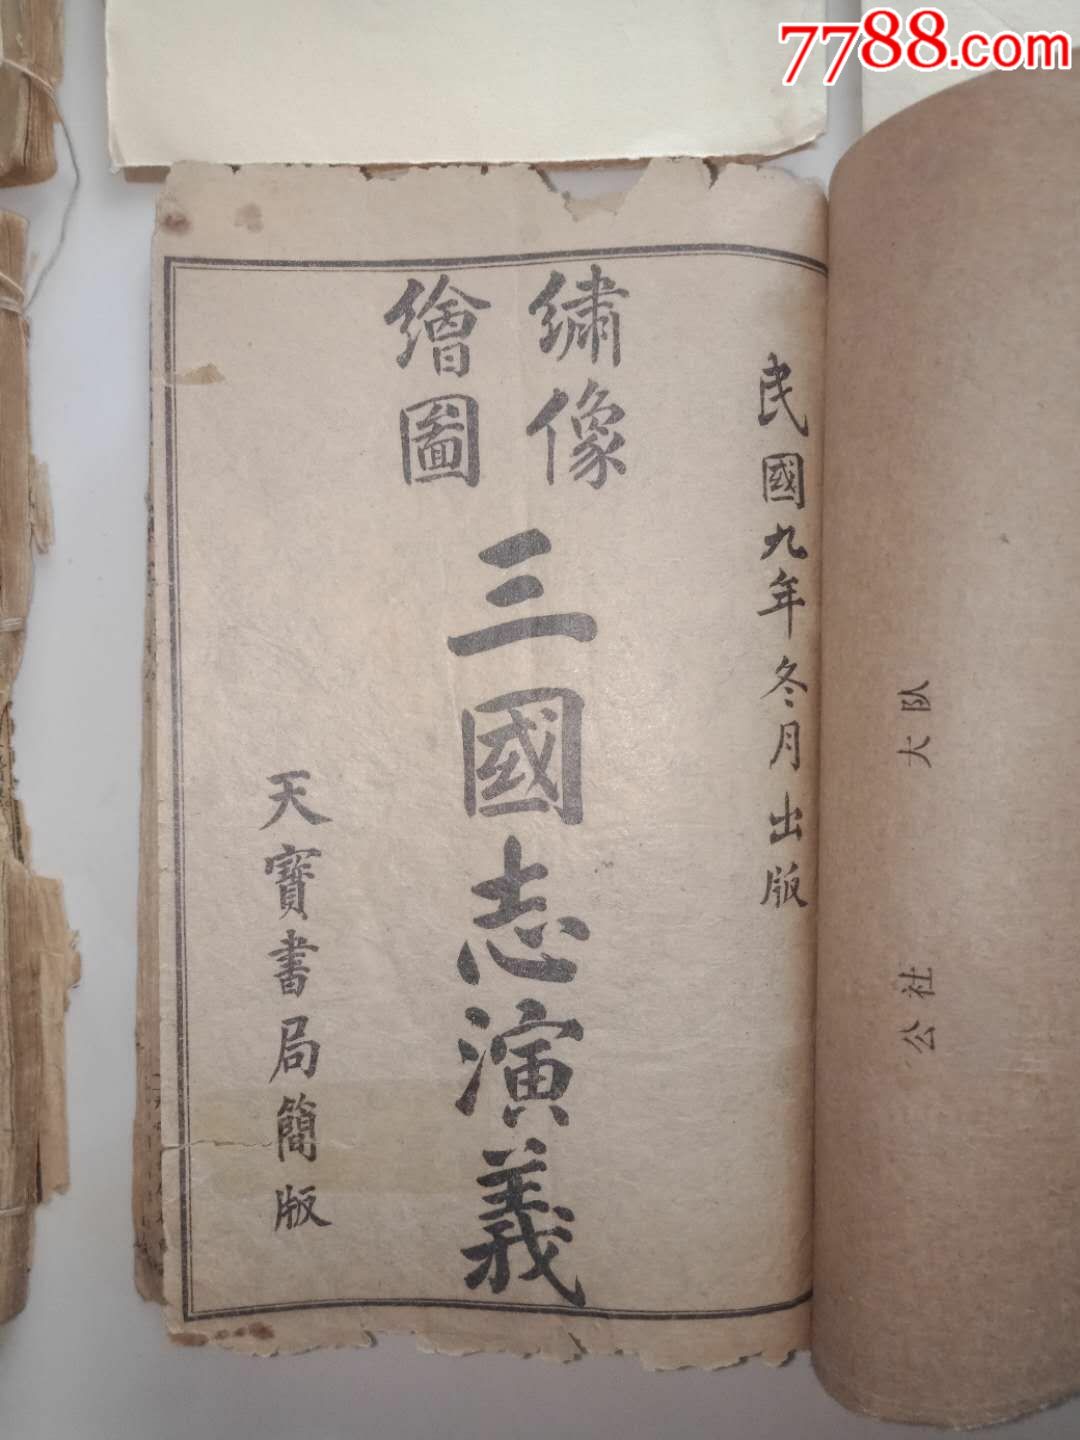 7788.com
民國九年冬月出版
繡像
繪圖
三國志演義
天寶書局簡版
公社
大队